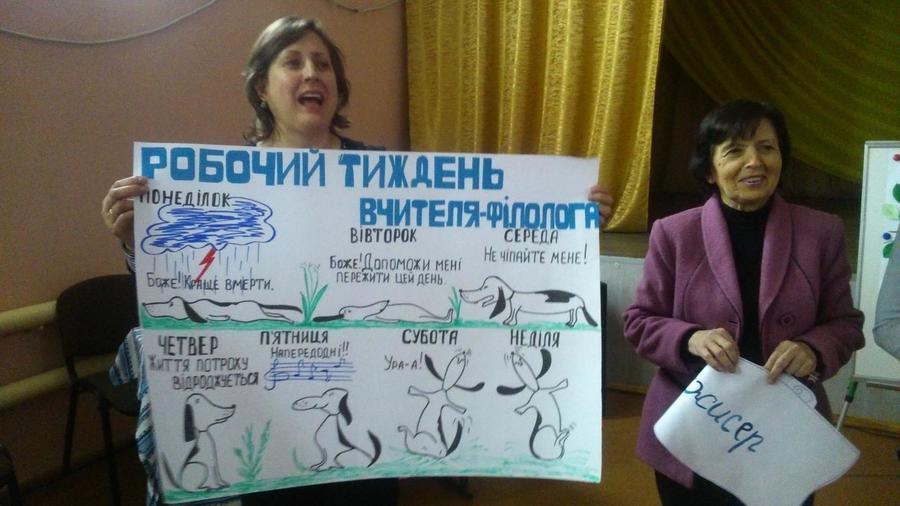 РОБОЧИЙ ТИЖДЕНЬ
ВЧИТЕЛЯ-ФІЛОЛОГА
ПОНЕДІЛОК
Боже! Краще вмерти.
ВІВТОРОК
Боже! Допоможи мені
пережити цей день.
СЕРЕДА
Не чіпайте мене!
ЧЕТВЕР
Життя потроху
відроджується
П'ЯТНИЦЯ
Напередодні!!
СУБОТА
Ура-а!
НЕДІЛЯ